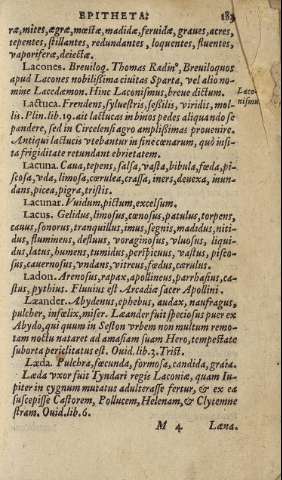 EPITHETA. 183
ræ, mites, ægræ, mœstæ, madidæ, feruidæ, graues, acres,
tepentes, stillantes, redundantes, loquentes, fluentes,
vaporiferæ, deiectæ.
Lacones. Breuiloq. Thomas Radin⁹, Breuiloquos
apud Lacones nobilissima ciuitas Sparta, vel alio no-
mine Lacedæmon. Hinc Laconismus, breue dictum.
Laco-
nismus
Lactuca. Frendens, syluestris, sessilis, viridis, mol-
lis. Plin. lib. 19. ait lactucas in binos pedes aliquando se
pandere, sed in Circelensi agro amplissimas prouenire.
Antiqui lactucis vtebantur in fine cœnarum, quò insi-
ta frigiditate retundant ebrietatem.
Lacuna. Caua, tepens, salsa, vasta, bibula, fœda, pi-
scosa, vda, limosa, cœrulea, crassa, iners, deuexa, inun-
dans, picea, pigra, tristis.
Lacunar. Vuidum, pictum, excelsum.
Lacus. Gelidus, limosus, cœnosus, patulus, torpens,
cauus, sonorus, tranquillus, imus, segnis, madidus, niti-
dus, flumineus, defluus, voraginosus, vluosus, liqui-
dus, latus, humens, tumidus, perspicuus, vastus, pisco-
sus, cauernosus, vndans, vitreus, fœdus, cærulus.
Ladon. Arenosus, rapax, apollineus, parrhasius, ca-
stus, pythius. Fluuius est Arcadiæ sacer Apollini.
Læander. Abydenus, ephebus, audax, naufragus,
pulcher, infœlix, miser. Læander fuit speciosus puer ex
Abydo, qui quum in Seston vrbem non multum remo-
tam noctu nataret ad amasiam suam Hero, tempestate
suborta periclitatus est. Ouid. lib. 3. Trist.
Læda. Pulchra, fœcunda, formosa, candida, graia.
Læda vxor fuit Tyndari regis Laconiæ, quam Iu-
piter in cygnum mutatus adulterasse fertur, & ex ea
suscepisse Castorem, Pollucem, Helenam, & Clytemne
stram. Ouid. lib. 6.
M 4 Læna.